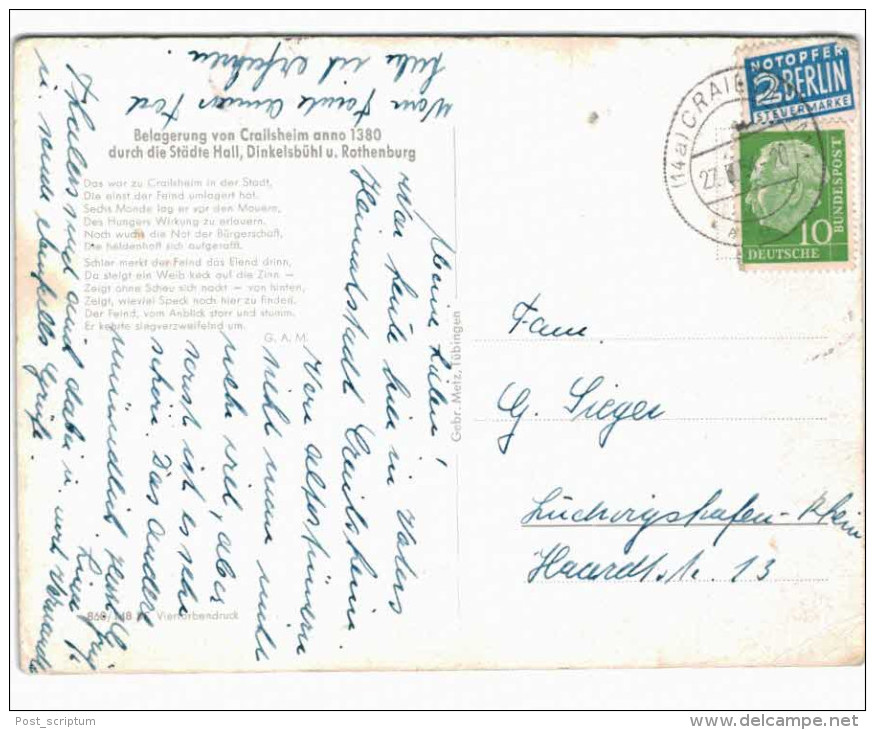 NOTOPFER
2 BERLIN
STEUERMARKE
(14a) CRAILSHEIM
10
DEUTSCHE
BUNDESPOST
Belagerung von Crailsheim anno 1380
durch die Städte Hall, Dinkelsbühl u. Rothenburg
Das war zu Crailsheim in der Stadt,
Die einst der Feind umlagert hat.
Sechs Monde lag er vor den Mauern,
Des Hungers Wirkung zu erlauern.
Noch wuchs die Not der Bürgerschaft,
Die heldenhaft sich aufgerafft.
Schier merkt der Feind das Elend drinn,
Da steigt ein Weib keck auf die Zinn –
Zeigt ohne Scheu sich nackt – von hinten,
Zeigt, wieviel Speck noch hier zu finden.
Der Feind, vom Anblick starr und stumm,
Er kehrte siegverzweifelnd um.
G. A. M.
860/ Vierfarbendruck
Gebr. Metz, Tübingen
Meine Lieben!
War heute hier in Vaters
Heimatstadt Crailsheim.
Von
nicht mehr
mehr viel, aber
sonst ist es sehr
schön. Das andere
mündlich. Herzl.
sind auch dabei u. noch Verwandte
u. senden ebenfalls Grüße.
habe ich erfahren.
Fam
G. Sieger
Ludwigshafen-Rhein
Haardtstr. 13
Post_scriptum
www.delcampe.net